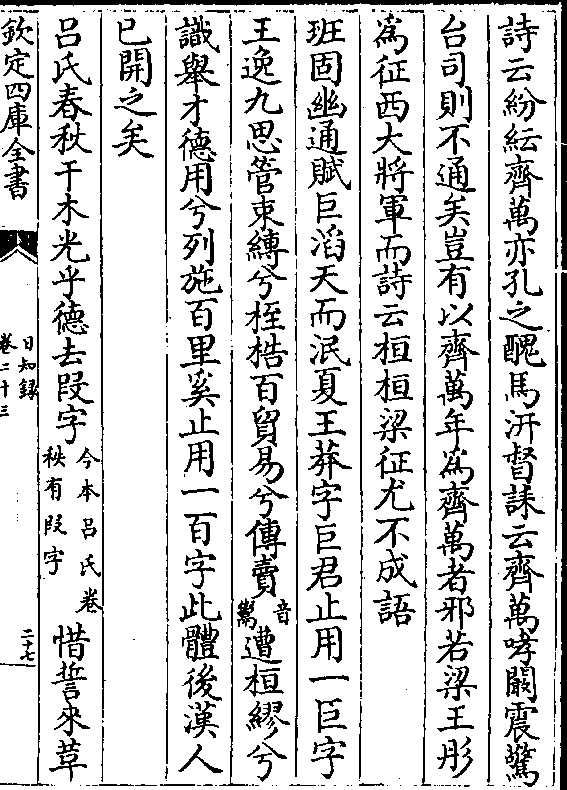 詩云紛紜齊萬亦孔之醜馬汧督誄云齊萬哮闞震驚
台司則不通矣豈有以齊萬年爲齊萬者邪若梁王彤
爲征西大將軍而詩云桓桓梁征尤不成語
班固幽通賦巨滔天而泯夏王莽字巨君止用一巨字
王逸九思管束縛兮桎梏百貿易兮傳賣音鬻遭桓繆兮
識舉才德用兮列施百里奚止用一百字此體後漢人
已開之矣
呂氏春秋干木光乎德去段字今本呂氏春秋有段字惜誓來革
欽定四庫全書
日知録
卷二十三
二十七